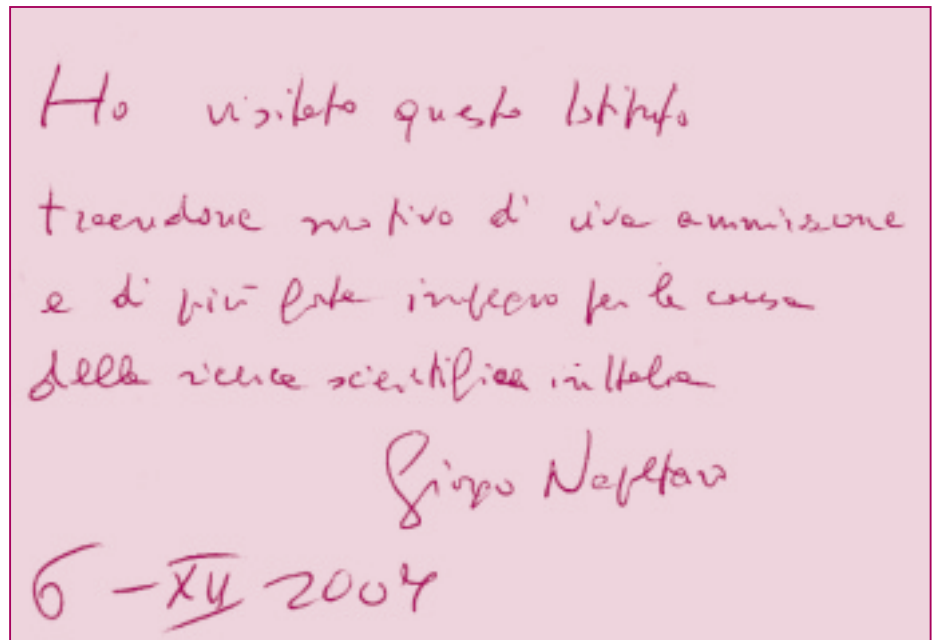 Ho visitato questo Istituto
traendone motivo di viva ammirazione
e di più forte impegno per la causa
della ricerca scientifica in Italia
Giorgio Napolitano
6 - XII 2007